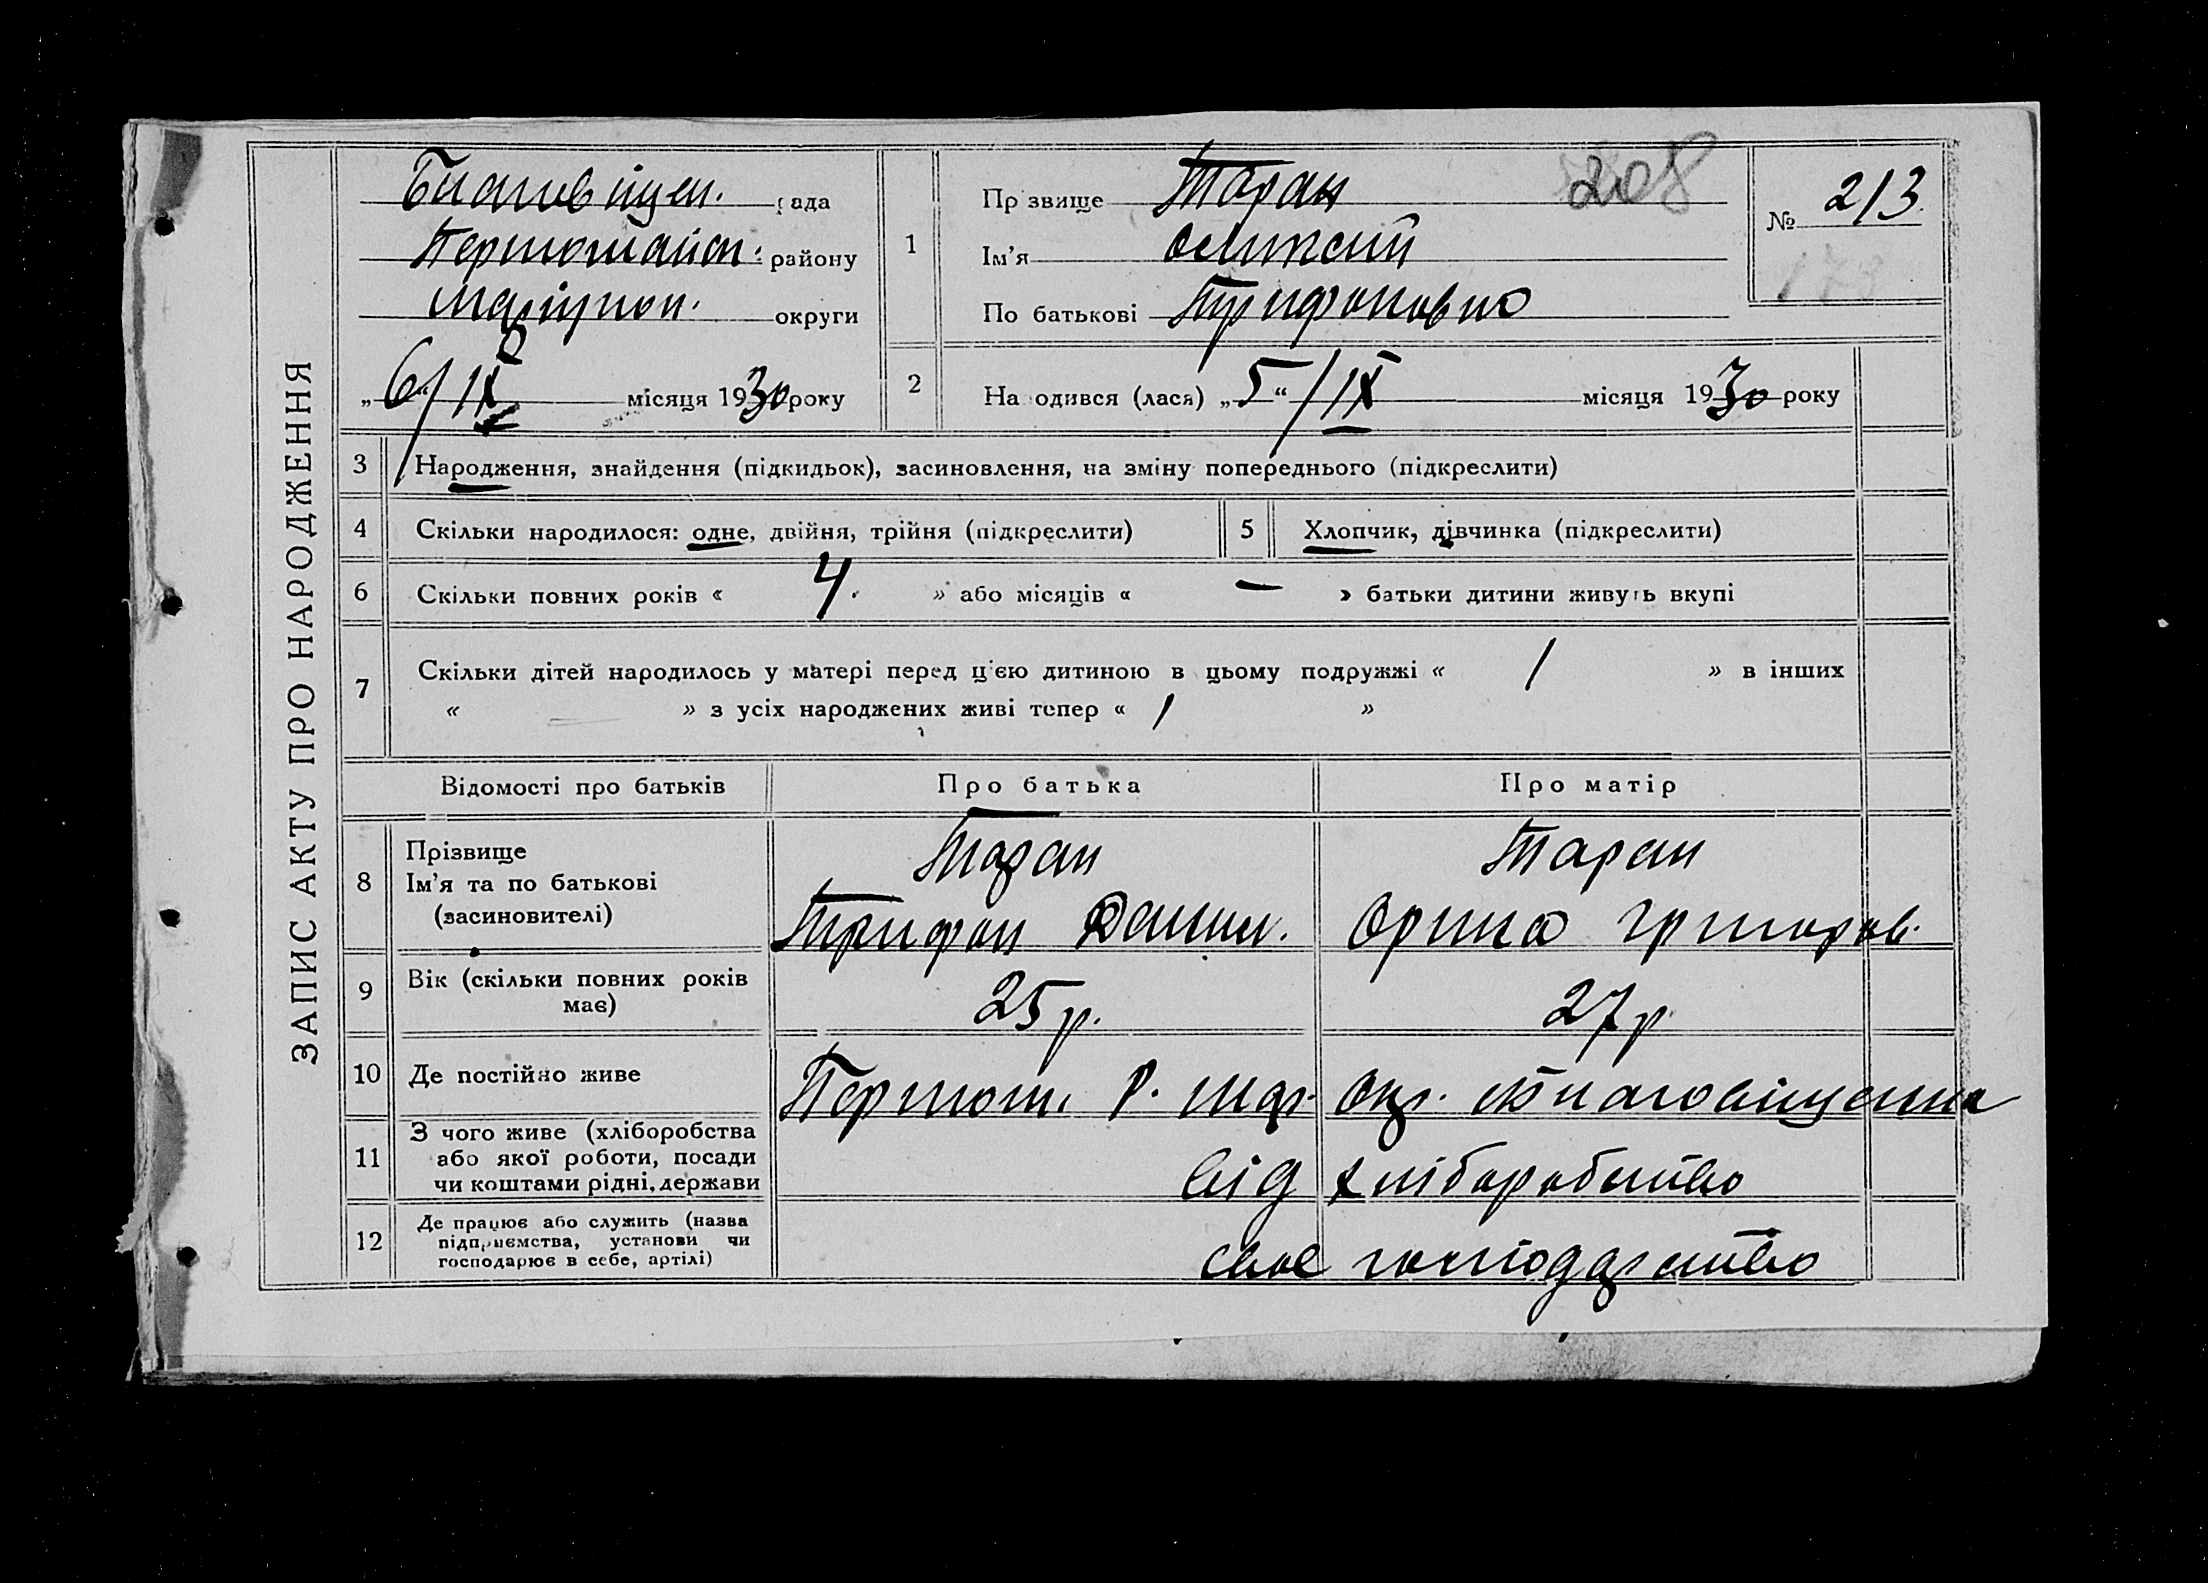 ЗАПИС АКТУ ПРО НАРОДЖЕННЯ
Благовіщен. рада
Першотравн. району
Маріуполь. округи
„6“/IX місяця 1930 року
1
Прізвище Таран
208
№ 213.
173
Ім’я Олексій
По батькові Трифонович
2
Народився (лася) „5“/IX місяця 1930 року
3 Народження, знайдення (підкидьок), засиновлення, на зміну попереднього (підкреслити)
4 Скільки народилося: одне, двійня, трійня (підкреслити)
5 Хлопчик, дівчинка (підкреслити)
6 Скільки повних років « 4. » або місяців « — » батьки дитини живуть вкупі
7 Скільки дітей народилось у матері перед цією дитиною в цьому подружжі « 1 » в інших
« — » з усіх народжених живі тепер « 1 »
Відомості про батьків Про батька Про матір
8 Прізвище
Ім’я та по батькові
(засиновителі)
Таран
Трифон Данил.
Таран
Орина Григоров.
9 Вік (скільки повних років
має)
25 р.
27 р.
10 Де постійно живе
Р. Мар. Окр. Благовіщенка
11 З чого живе (хліборобства
або якої роботи, посади
чи коштами рідні, держави
від хліборобство
12 Де працює або служить (назва
підприємства, установи чи
господарює в себе, артілі)
своє господарство